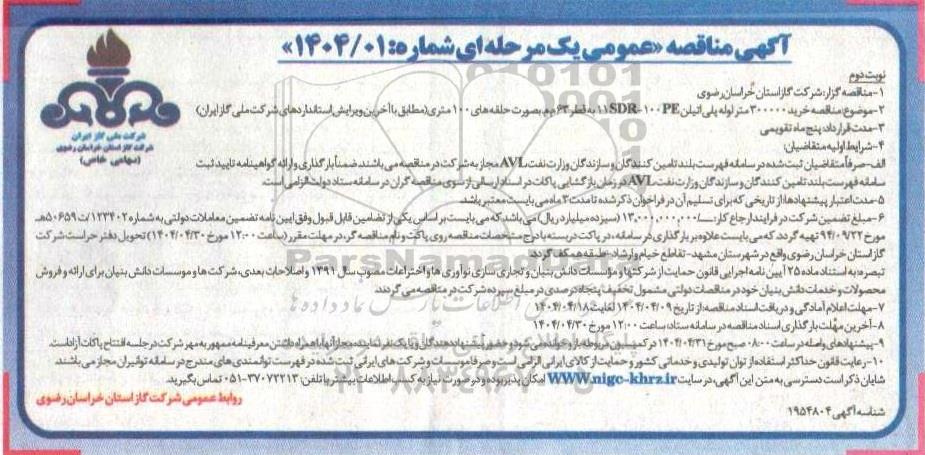 آگهی مناقصه «عمومی یک مرحله ای شماره: ۱۴۰۴/۰۱»
شرکت ملی گاز ایران
شرکت گاز استان خراسان رضوی
(سهامی خاص)
نوبت دوم
۱-مناقصه گزار: شرکت گاز استان خُراسان رضوی
۲-موضوع: مناقصه خرید ۳۰۰۰۰۰ متر لوله پلی اتیلن ۱۱SDR-۱۰۰PE به قطر ۶۳ م.م. بصورت حلقه های ۱۰۰ متری (مطابق با آخرین ویرایش استانداردهای شرکت ملی گاز ایران)
۳-مدت قرارداد: پنج ماه تقویمی
۴-شرایط اولیه متقاضیان:
الف-صرفاً متقاضیان ثبت شده در سامانه فهرست بلند تامین کنندگان و سازندگان وزارت نفت AVL مجاز به شرکت در مناقصه می باشند. ضمناً بارگذاری و ارائه گواهینامه تایید ثبت
سامانه فهرست بلند تامین کنندگان و سازندگان وزارت نفت AVL در زمان بازگشایی پاکات در اسناد ارسالی از سوی مناقصه گران در سامانه ستاد دولت الزامی است.
۵-مدت اعتبار پیشنهادها: از تاریخی که برای تسلیم آن در فراخوان ذکر شده تا مدت ۳ ماه می بایست معتبر باشد.
۶-مبلغ تضمین شرکت در فرایند ارجاع کار: ۱۳,۰۰۰,۰۰۰,۰۰۰ (سیزده میلیارد ریال) می باشد که می بایست بر اساس یکی از تضامین قابل قبول وفق آیین نامه تضمین معاملات دولتی به شماره ۱۲۳۴۰۲/ت۵۰۶۵۹هـ
مورخ ۹۴/۰۹/۲۲ تهیه گردد که می بایست علاوه بر بارگذاری در سامانه، در پاکت دربسته با درج مشخصات مناقصه روی پاکت و نام مناقصه گر، در مهلت مقرر (ساعت ۱۲:۰۰ مورخ ۱۴۰۴/۰۴/۳۰) تحویل دفتر حراست شرکت
گاز استان خراسان رضوی واقع در شهرستان مشهد- تقاطع خیام و ارشاد- طبقه همکف گردد.
تبصره: به استناد ماده ۲۵ آیین نامه اجرایی قانون حمایت از شرکتها و مؤسسات دانش بنیان و تجاری سازی نوآوری ها و اختراعات مصوب سال ۱۳۹۱ و اصلاحات بعدی، شرکت ها و موسسات دانش بنیان برای ارائه و فروش
محصولات و خدمات دانش بنیان خود در مناقصات دولتی مشمول تخفیف پنجاه درصدی در مبلغ سپرده شرکت در مناقصه می گردند.
۷-مهلت اعلام آمادگی و دریافت اسناد مناقصه: از تاریخ ۱۴۰۴/۰۴/۰۹ لغایت ۱۴۰۴/۰۴/۱۸
۸-آخرین مهلت بارگذاری اسناد مناقصه در سامانه ستاد: ساعت ۱۲:۰۰ مورخ ۱۴۰۴/۰۴/۳۰
۹-پیشنهادهای واصله در ساعت ۰۸:۰۰ صبح مورخ ۱۴۰۴/۰۴/۳۱ در کمیسیون مربوطه باز و خوانده می شود و حضور پیشنهاددهندگان و یا یک نفر نماینده مجاز آنها با همراه داشتن معرفینامه ممهور به مهر شرکت در جلسه افتتاح پاکات آزاد است.
۱۰-رعایت قانون حداکثر استفاده از توان تولیدی و خدماتی کشور و حمایت از کالای ایرانی الزامی است و صرفا موسسات و شرکت های ایرانی ثبت شده در فهرست توانمندی های مندرج در سامانه توانیران مجاز می باشند
شایان ذکر است دسترسی به متن این آگهی، در سایت www.nigc-khrz.ir امکان پذیر بوده و در صورت نیاز به کسب اطلاعات بیشتر با تلفن: ۳۷۰۷۲۲۱۳-۰۵۱ تماس بگیرید.
روابط عمومی شرکت گاز استان خراسان رضوی
شناسه آگهی ۱۹۵۴۸۰۴